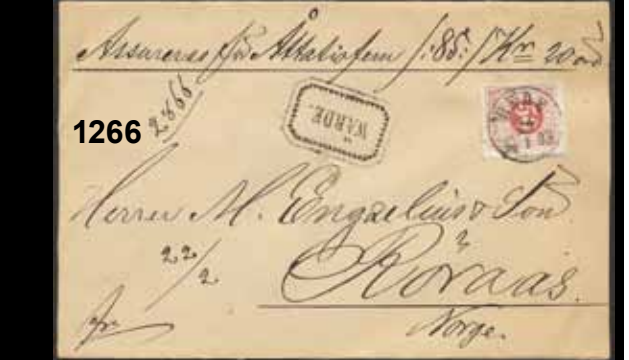 Assureras för Åttatiofem /:85:/ Kr 20
1266
2866
WÄRDE.
Herrer M. Engzelius & Son
22/2
Röraas.
Norge.